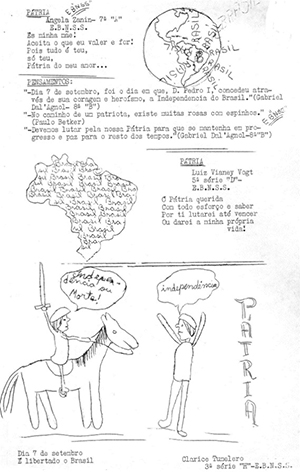 PÁTRIA
Ângela Zanin- 7ª "A"
E.B.N.S.S.
És minha mãe!
Aceita o que eu valer e for!
Pois tudo é teu,
só teu,
Pátria do meu amor...
BRASIL
PENSAMENTOS:
"-Dia 7 de setembro, foi o dia em que, D. Pedro I, concedeu atra-
vés de sua coragem e heroísmo, a Independência do Brasil."(Gabriel
Dal'Agnol- 8ª "B")
"-No caminho de um patriota, existe muitas rosas com espinhos."
(Paulo Betker)
"-Devemos lutar pela nossa Pátria para que se mantenha em pro-
gresso e paz para o resto dos tempos."(Gabriel Dal'Agnol-8ª"B")
PÁTRIA
Luiz Vianey Vogt
5ª série "D"-
E.B.N.S.S.
Ó Pátria querida
Com todo esforço e saber
Por ti lutarei até vencer
Ou darei a minha própria
vida!
Brasil Brasil Brasil
Indepen-
dência ou
Morte!
independência
PATRIA
Dia 7 de setembro
É libertado o Brasil
Clarice Tumelero
3ª série "H"-E.B.N.S.S.